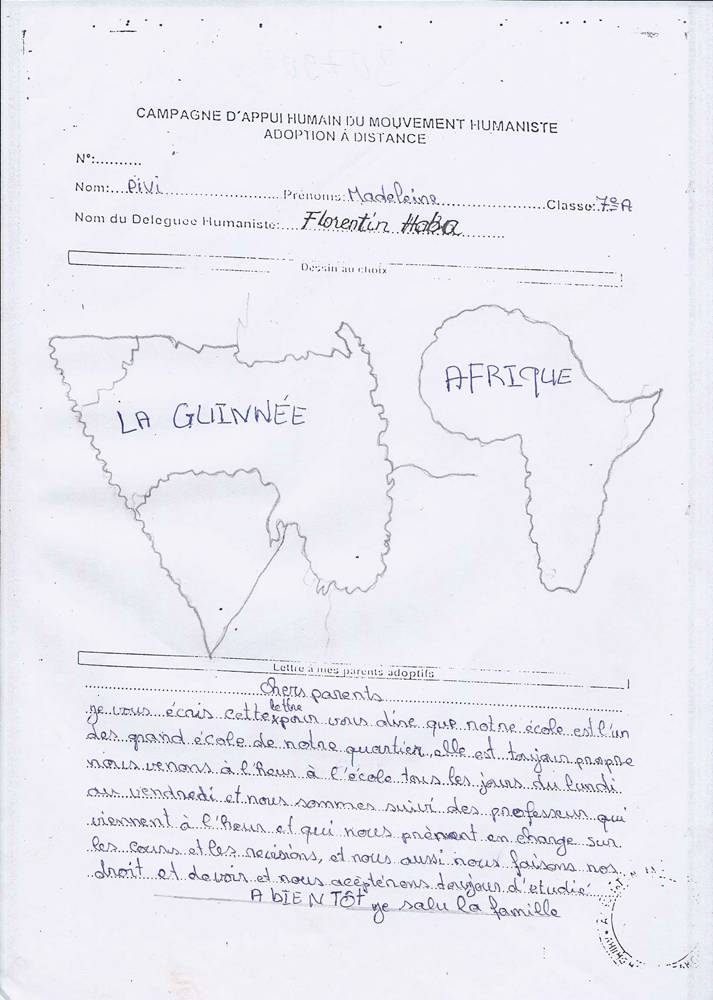 CAMPAGNE D'APPUI HUMAIN DU MOUVEMENT HUMANISTE
ADOPTION À DISTANCE
N°:..........
Nom: Pivi Prénoms: Madeleine Classe: 7e A
Nom du Deleguee Humaniste: Florentin Haba
Dessin au choix
LA GUINNÉE
AFRIQUE
Lettre à mes parents adoptifs
Chers parents
je vous écris cette lettre pour vous dire que notre école est l'un
des grand école de notre quartier, elle est toujour propre
nous venons à l'heur à l'école tous les jours du lundi
au vendredi et nous sommes suivi des professeur qui
viennent à l'heur et qui nous prènent en charge sur
les cours et les révisions, et nous aussi nous faisons nos
droit et devoir et nous accèptenons toujour d'etudié
A BIENTÔT je salu la famille